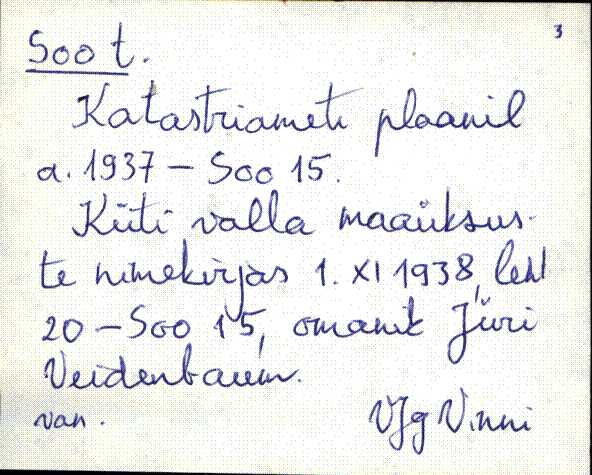 3
Soo t.
Katastriameti plaanil
a. 1937 – Soo 15.
Küti valla maaüksus-
te nimekirjas 1. XI 1938, leht
20 – Soo 15, omanik Jüri
Veidenbaum.
van. VJg Vinni